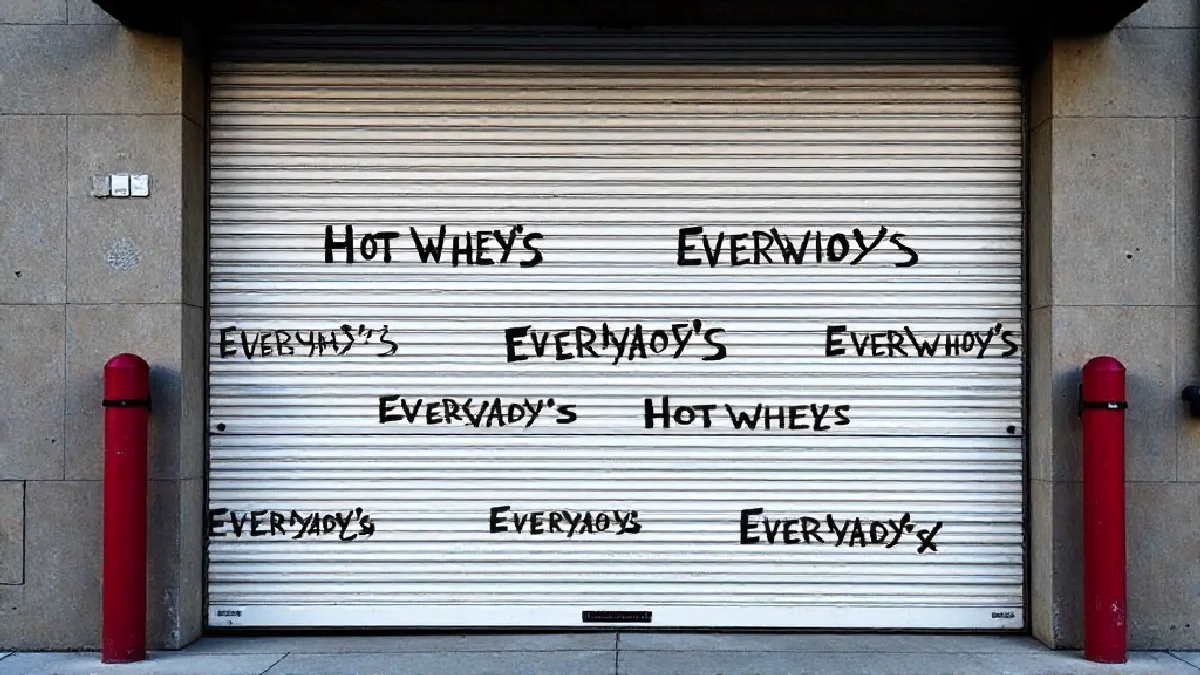 HOT WHEY'S EVERWIOY'S
EVERYAOY'S EVERWHOY'S
EVERYADY'S HOT WHEYS
EVERYADY'S EVERYAOYS EVERYADY'X